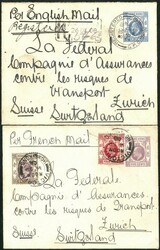 Per English Mail
La Federal
Compagnie d'Assurances
contre les risques de
transport
Zurich
Suisse Switzerland
Per French Mail
La Federale
Compagnie d'Assurances
contre les risques de Transport
Zurich
Suisse Switzerland